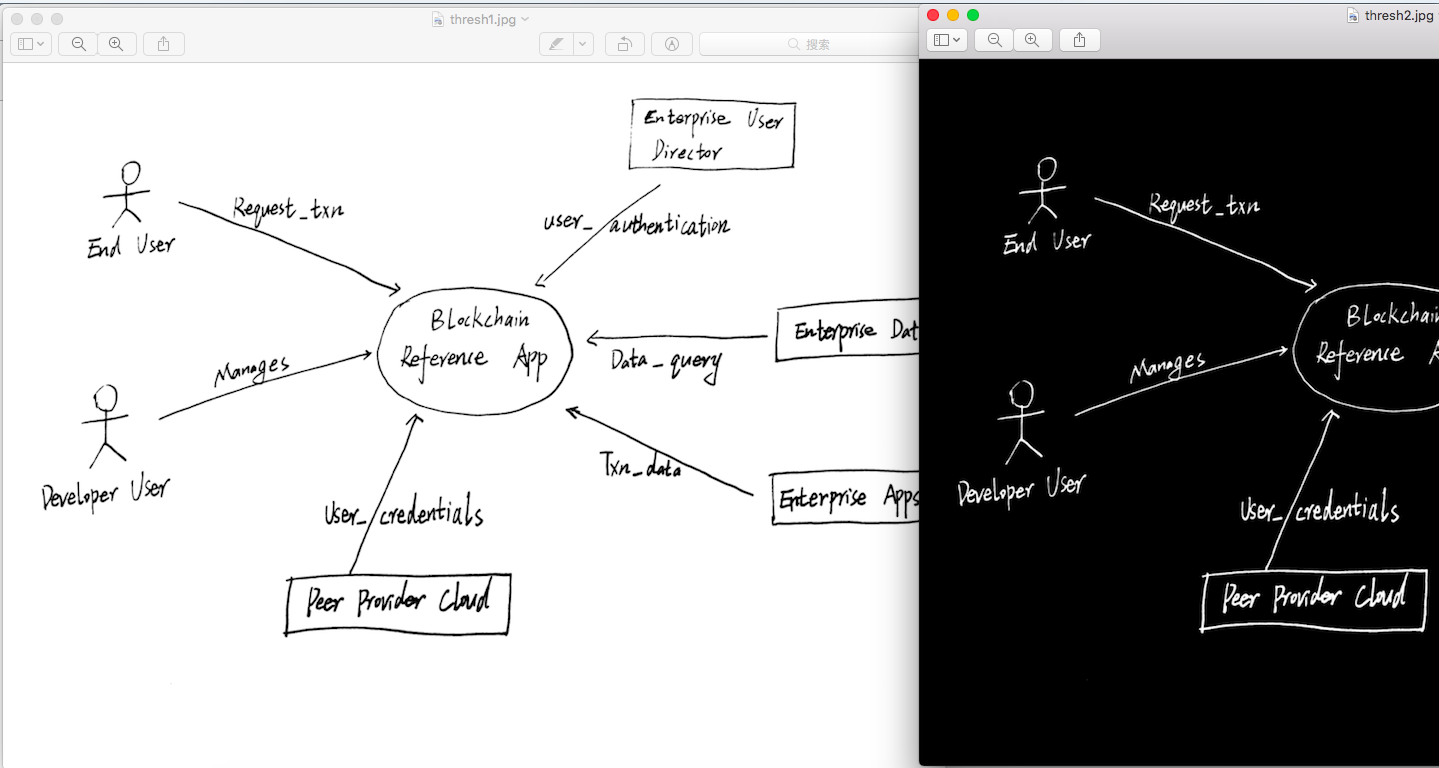 thresh1.jpg
搜索
Enterprise User
Director
Request_txn
user_ authentication
End User
Blockchain
Reference App
Enterprise Dat
Data_query
Manages
Txn_data
Developer User
Enterprise Apps
User_ credentials
Peer Provider Cloud
thresh2.jpg
Request_txn
End User
Blockchain
Reference A
Manages
Developer User
User_ credentials
Peer Provider Cloud